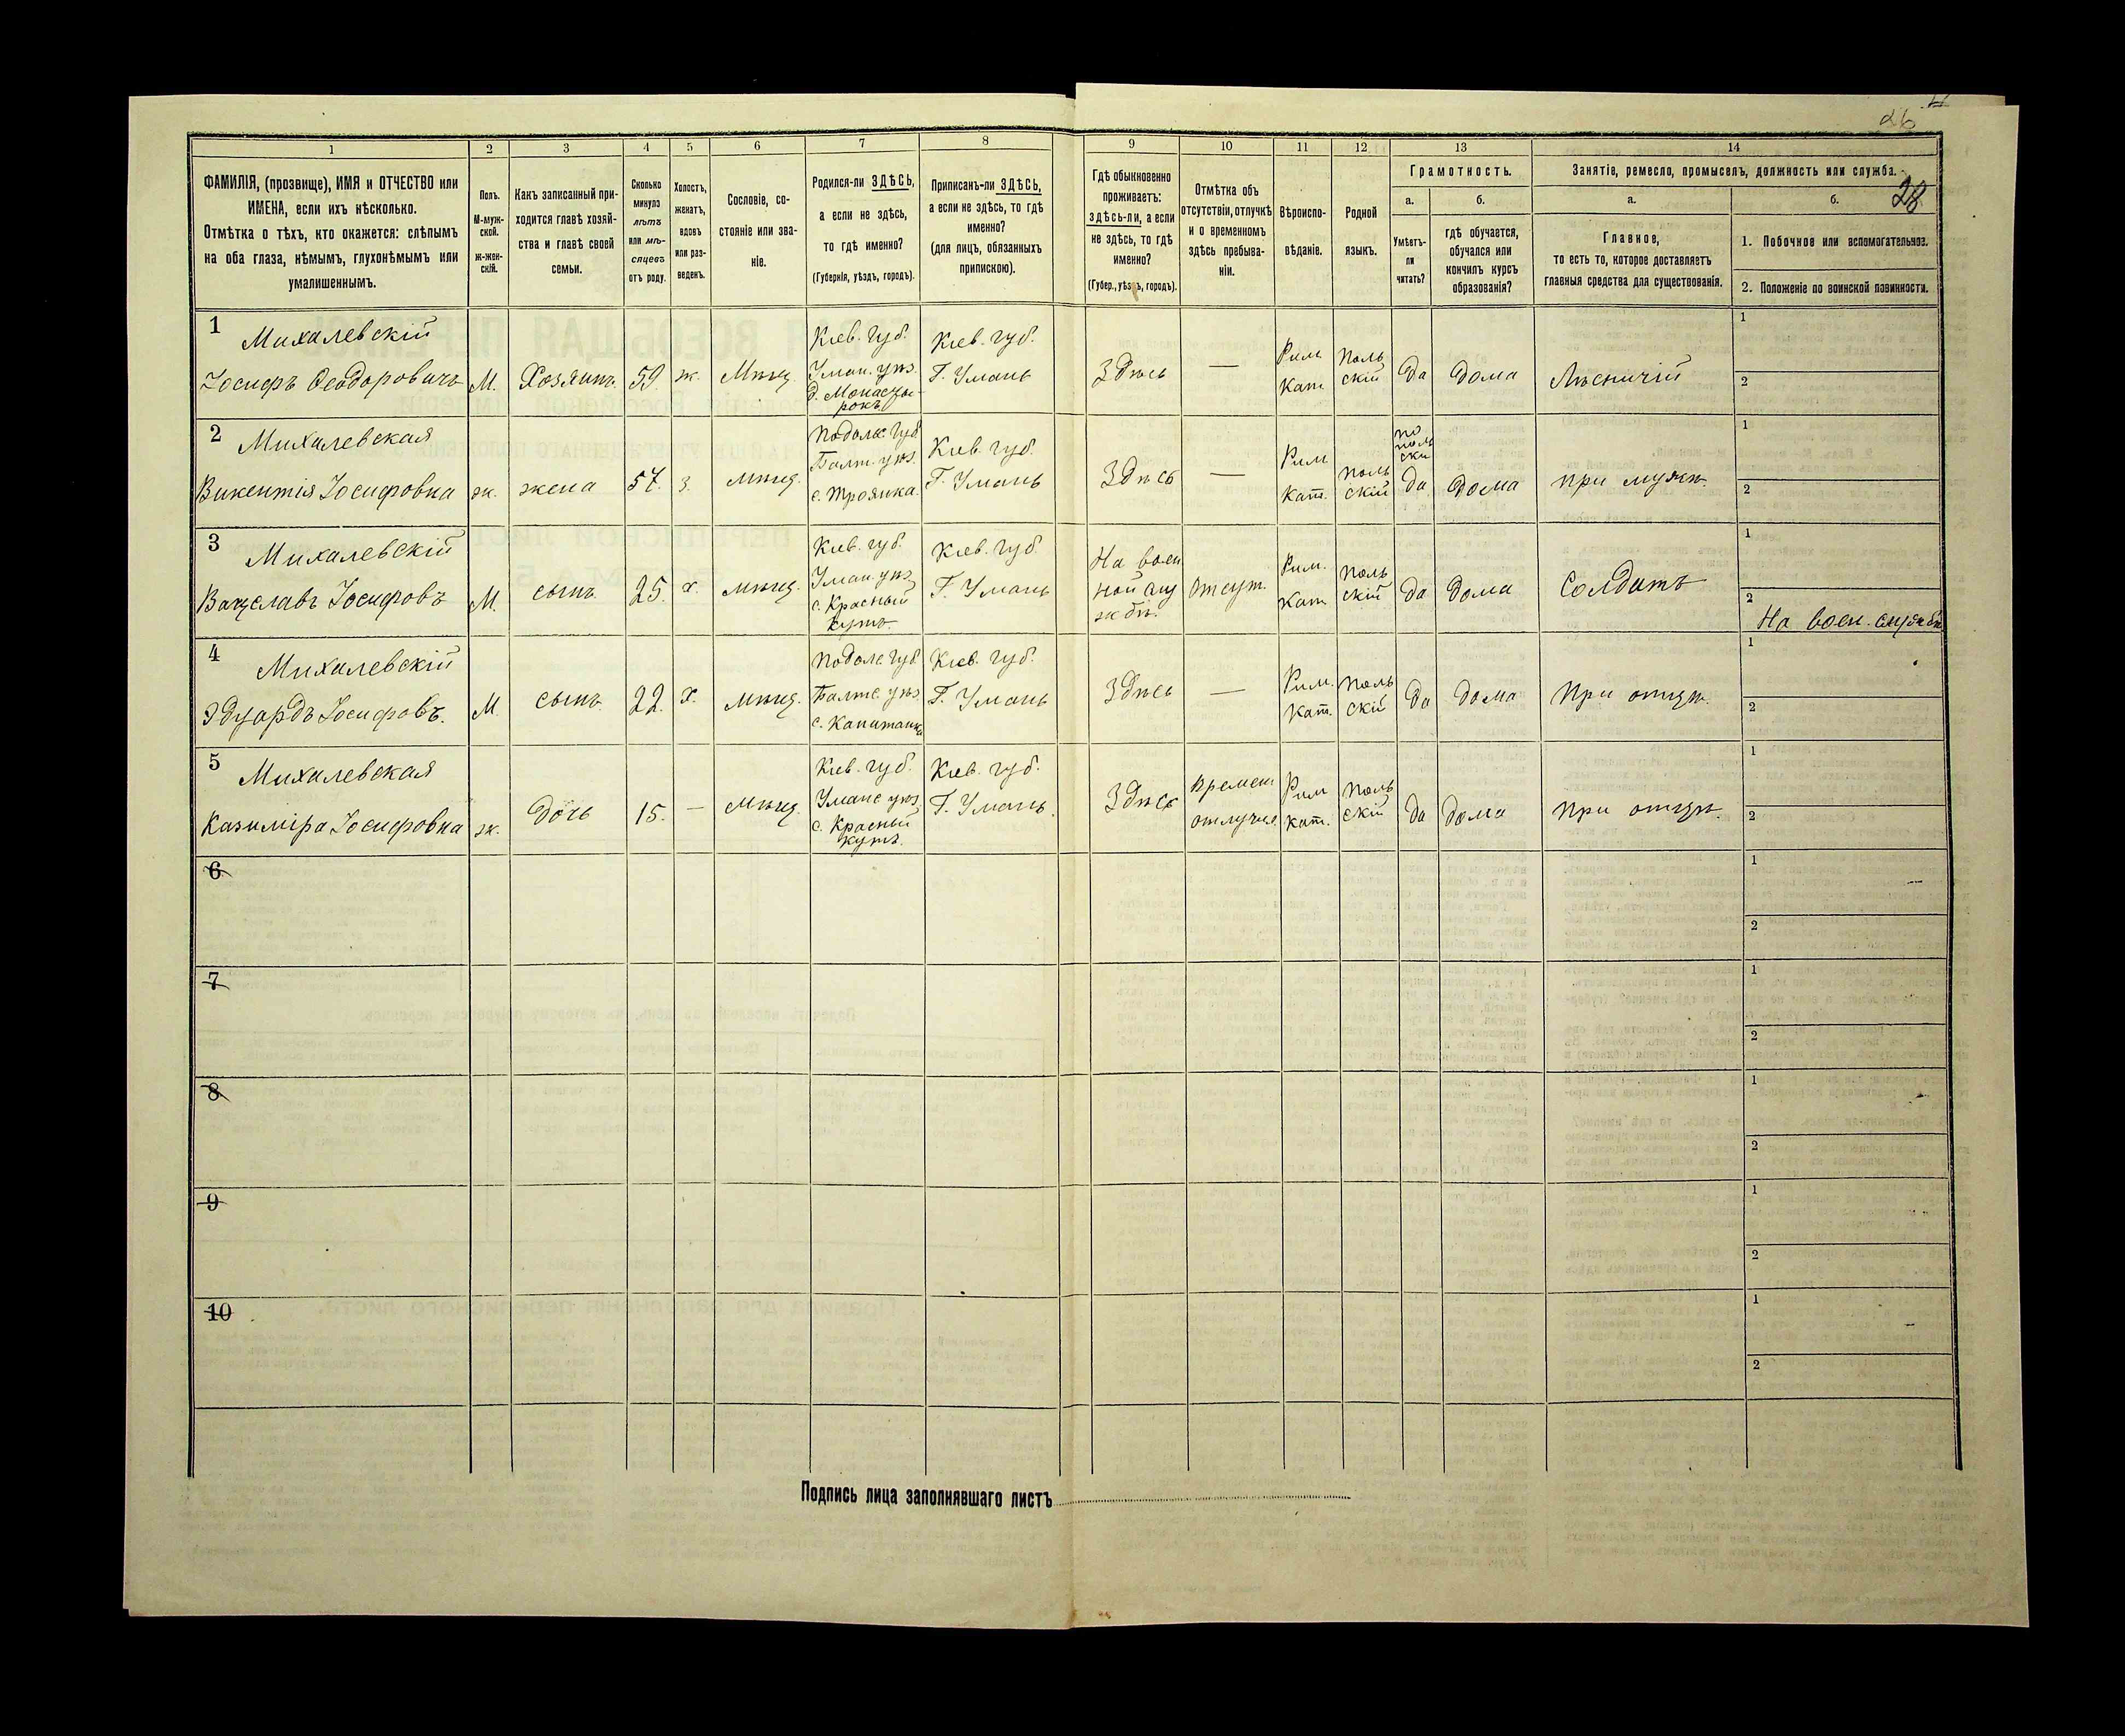 26
28
1
2
3
4
5
6
7
8
9
10
11
12
13
14
ФАМИЛІЯ, (прозвище), ИМЯ и ОТЧЕСТВО или
ИМЕНА, если ихъ нѣсколько.
Отмѣтка о тѣхъ, кто окажется: слѣпымъ
на оба глаза, нѣмымъ, глухонѣмымъ или
умалишеннымъ.
Полъ.
М-муж-
ской.
ж-жен-
скій.
Какъ записанный при-
ходится главѣ хозяй-
ства и главѣ своей
семьи.
Сколько
минуло
лѣтъ
или мѣ-
сяцевъ
отъ роду.
Холостъ,
женатъ,
вдовъ
или раз-
веденъ.
Сословіе, со-
стояніе или зва-
ніе.
Родился-ли ЗДѢСЬ,
а если не здѣсь,
то гдѣ именно?
(Губернія, уѣздъ, городъ).
Приписанъ-ли ЗДѢСЬ,
а если не здѣсь, то гдѣ
именно?
(для лицъ, обязанныхъ
припискою).
Гдѣ обыкновенно
проживаетъ:
здѣсь-ли, а если
не здѣсь, то гдѣ
именно?
(Губер., уѣздъ, городъ).
Отмѣтка объ
отсутствіи, отлучкѣ
и о временномъ
здѣсь пребыва-
ніи.
Вѣроиспо-
вѣданіе.
Родной
языкъ.
Грамотность.
а.
Умѣетъ-
ли
читать?
б.
гдѣ обучается,
обучался или
кончилъ курсъ
образованія?
Занятіе, ремесло, промыселъ, должность или служба.
а.
Главное,
то есть то, которое доставляетъ
главныя средства для существованія.
б.
1. Побочное или вспомогательное.
2. Положеніе по воинской повинности.
1
Михалевскій
Іосифъ Ѳеодоровичъ
М.
Хозяинъ.
59.
ж.
Мѣщ.
Кіев. губ.
Уман. уѣз.
д. Монасты-
рокъ
Кіев. губ.
Г. Умань
Здѣсь
—
Рим
Кат
Поль
скій
Да
Дома
Лѣсничій
1
2
2
Михалевская
Викентія Іосифовна
ж.
жена
57.
з.
мѣщ.
Подольс. губ.
Балт. уѣз.
с. Троянка.
Кіев. губ.
Г. Умань
Здѣсь
—
Рим
Кат.
Поль
скій
по
поль
ски
Да
Дома
при мужѣ.
1
2
3
Михалевскій
Вацславъ Іосифовъ
М.
сынъ
25.
х.
мѣщ.
Кіев. губ.
Уман. уѣз
с. Красный
Кутъ.
Кіев. губ.
Г. Умань
На воен
ной слу
жбѣ.
Отсут.
Рим.
Кат
Поль
скій
Да
Дома
Солдатъ
1
2
На воен. службѣ
4
Михалевскій
Эдуардъ Іосифовъ.
М.
сынъ
22.
х.
мѣщ.
Подольс губ.
Балтс. уѣз
с. Капитанка
Кіев. губ.
Г. Умань
Здѣсь
—
Рим.
Кат.
Поль
скій
Да
Дома
При отцѣ.
1
2
5
Михалевская
Казиміра Іосифовна
ж.
дочь
15.
—
мѣщ.
Кіев. губ.
Уманс уѣз
с. Красный
кутъ.
Кіев. губ.
Г. Умань.
Здѣсь
Времен
отлучка
Рим
кат.
Поль
скій
Да
дома
При отцѣ.
1
2
6
1
2
7
1
2
8
1
2
9
1
2
10
1
2
Подпись лица заполнявшаго листъ